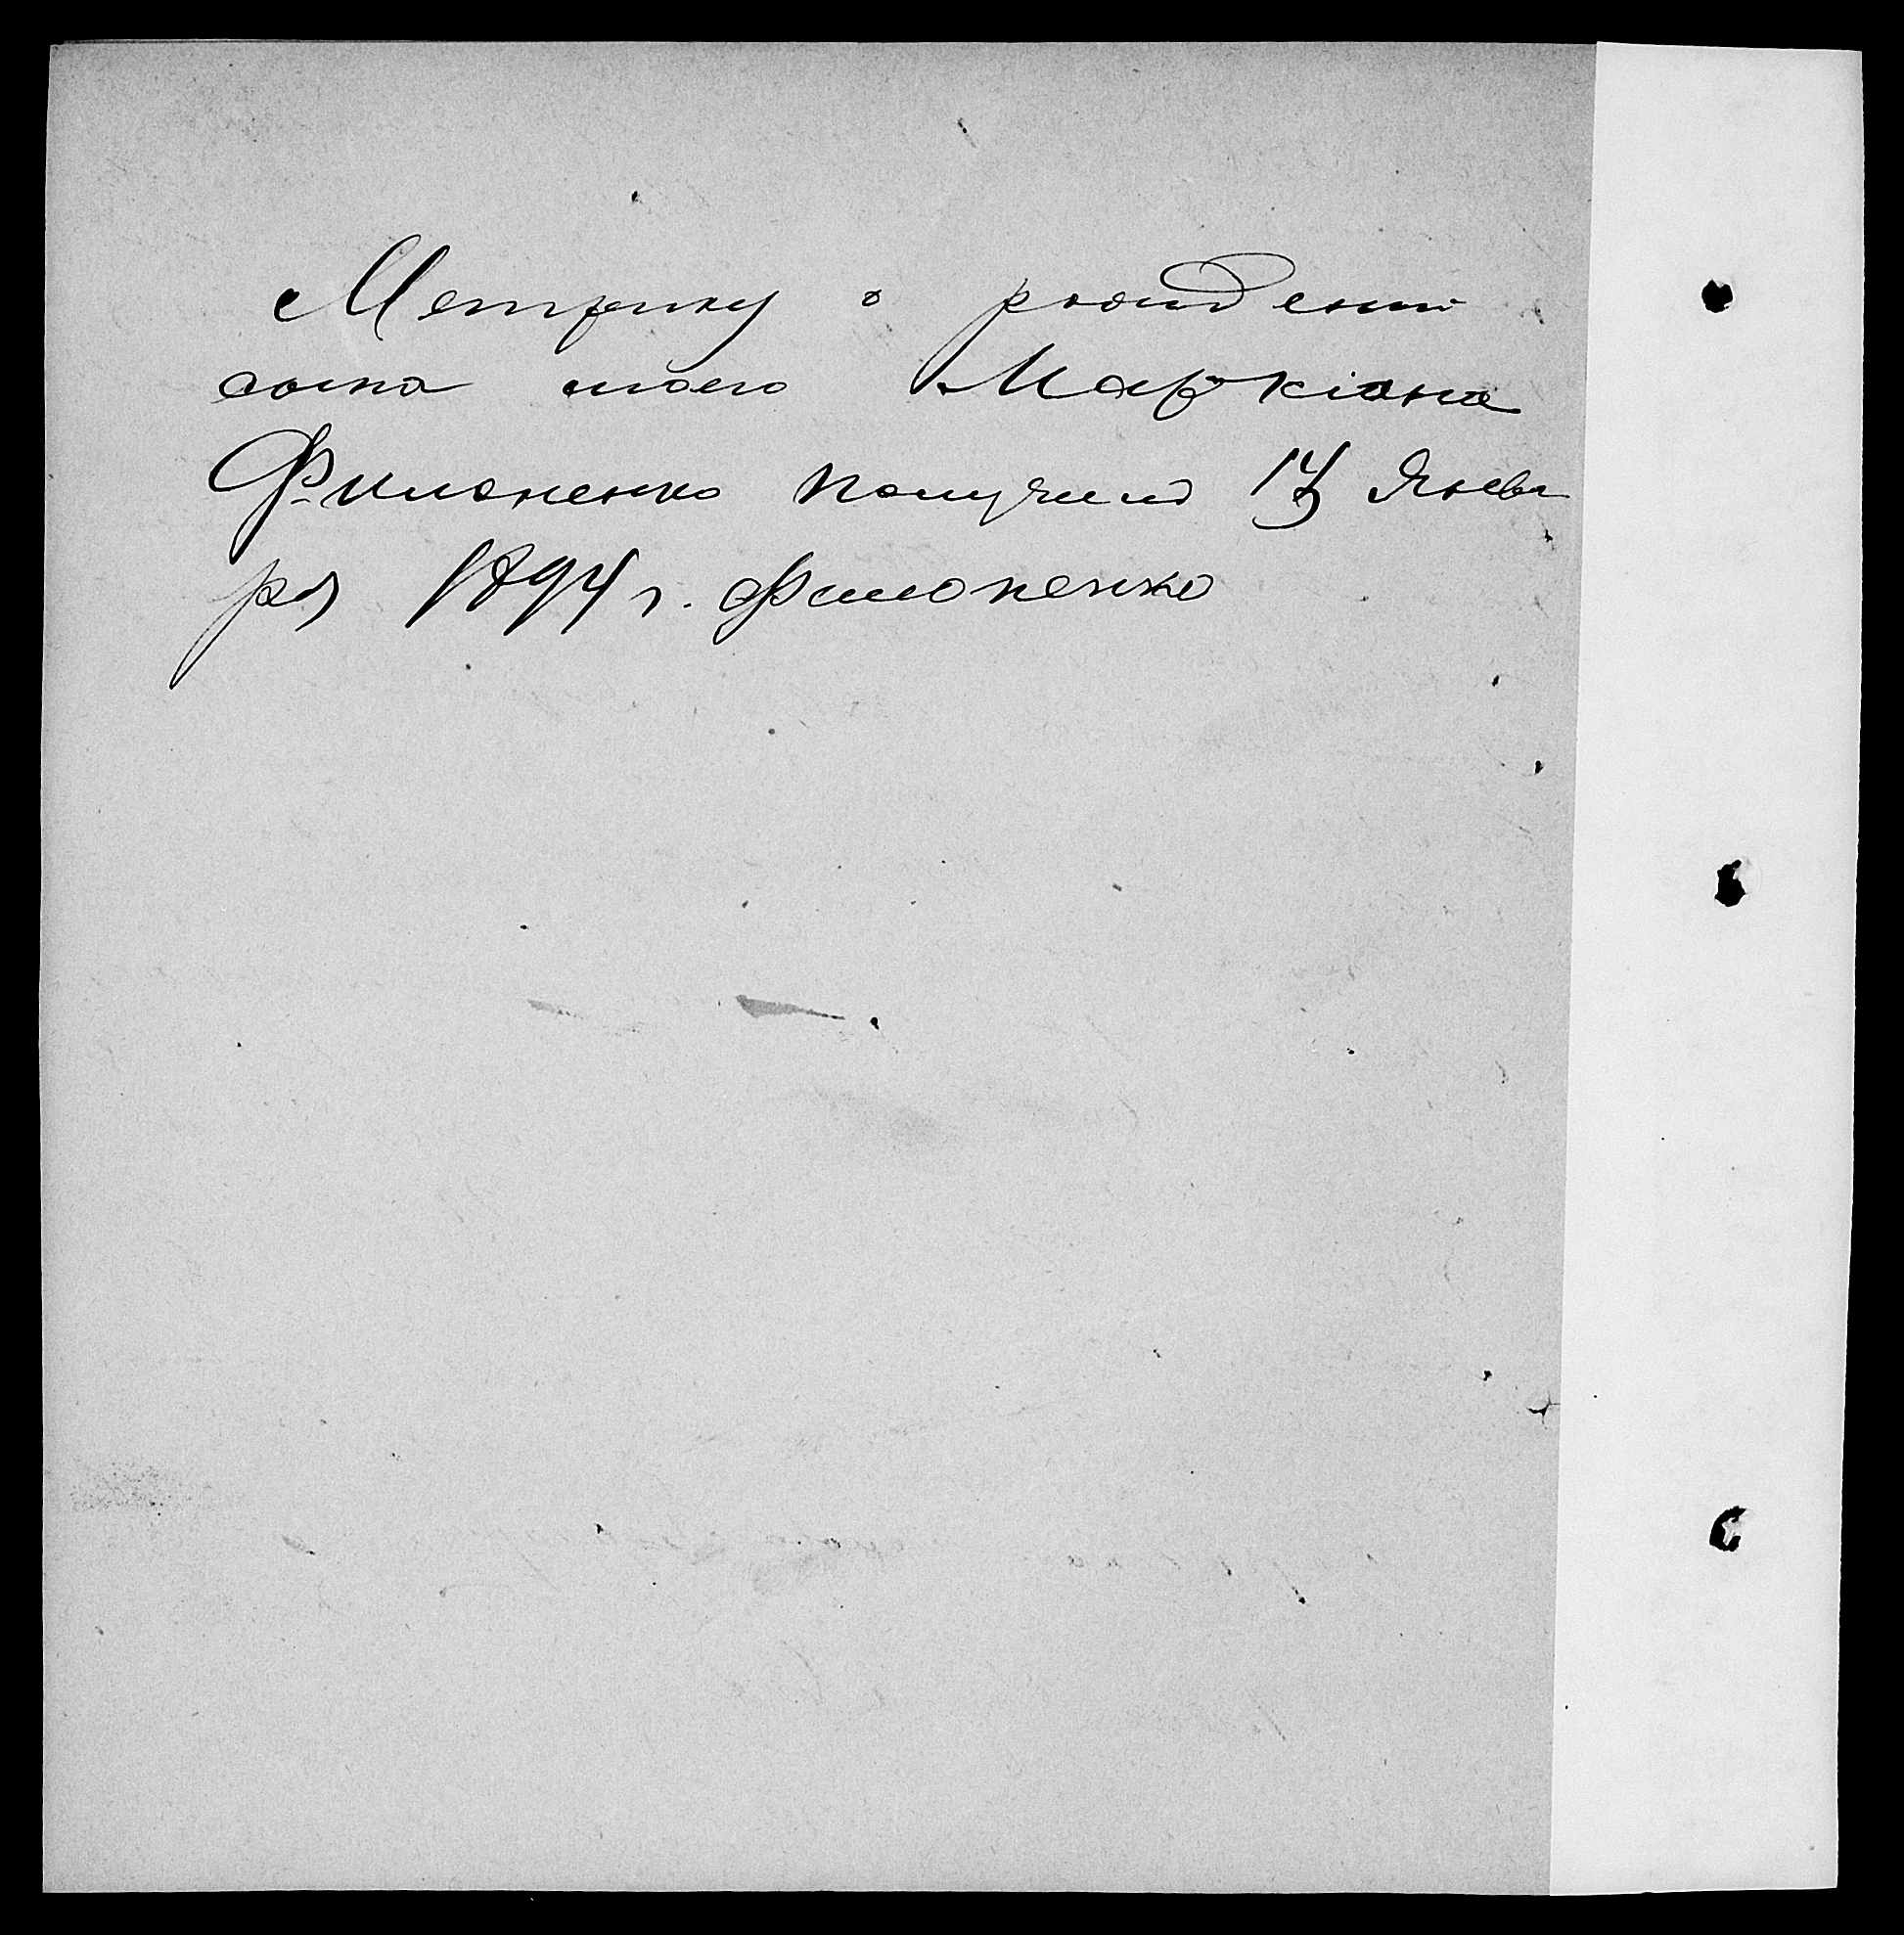 Метрику о рождении
сына моего Маркіана
Филоненко получилъ 17 Янва
ря 1894 г. Филоненко